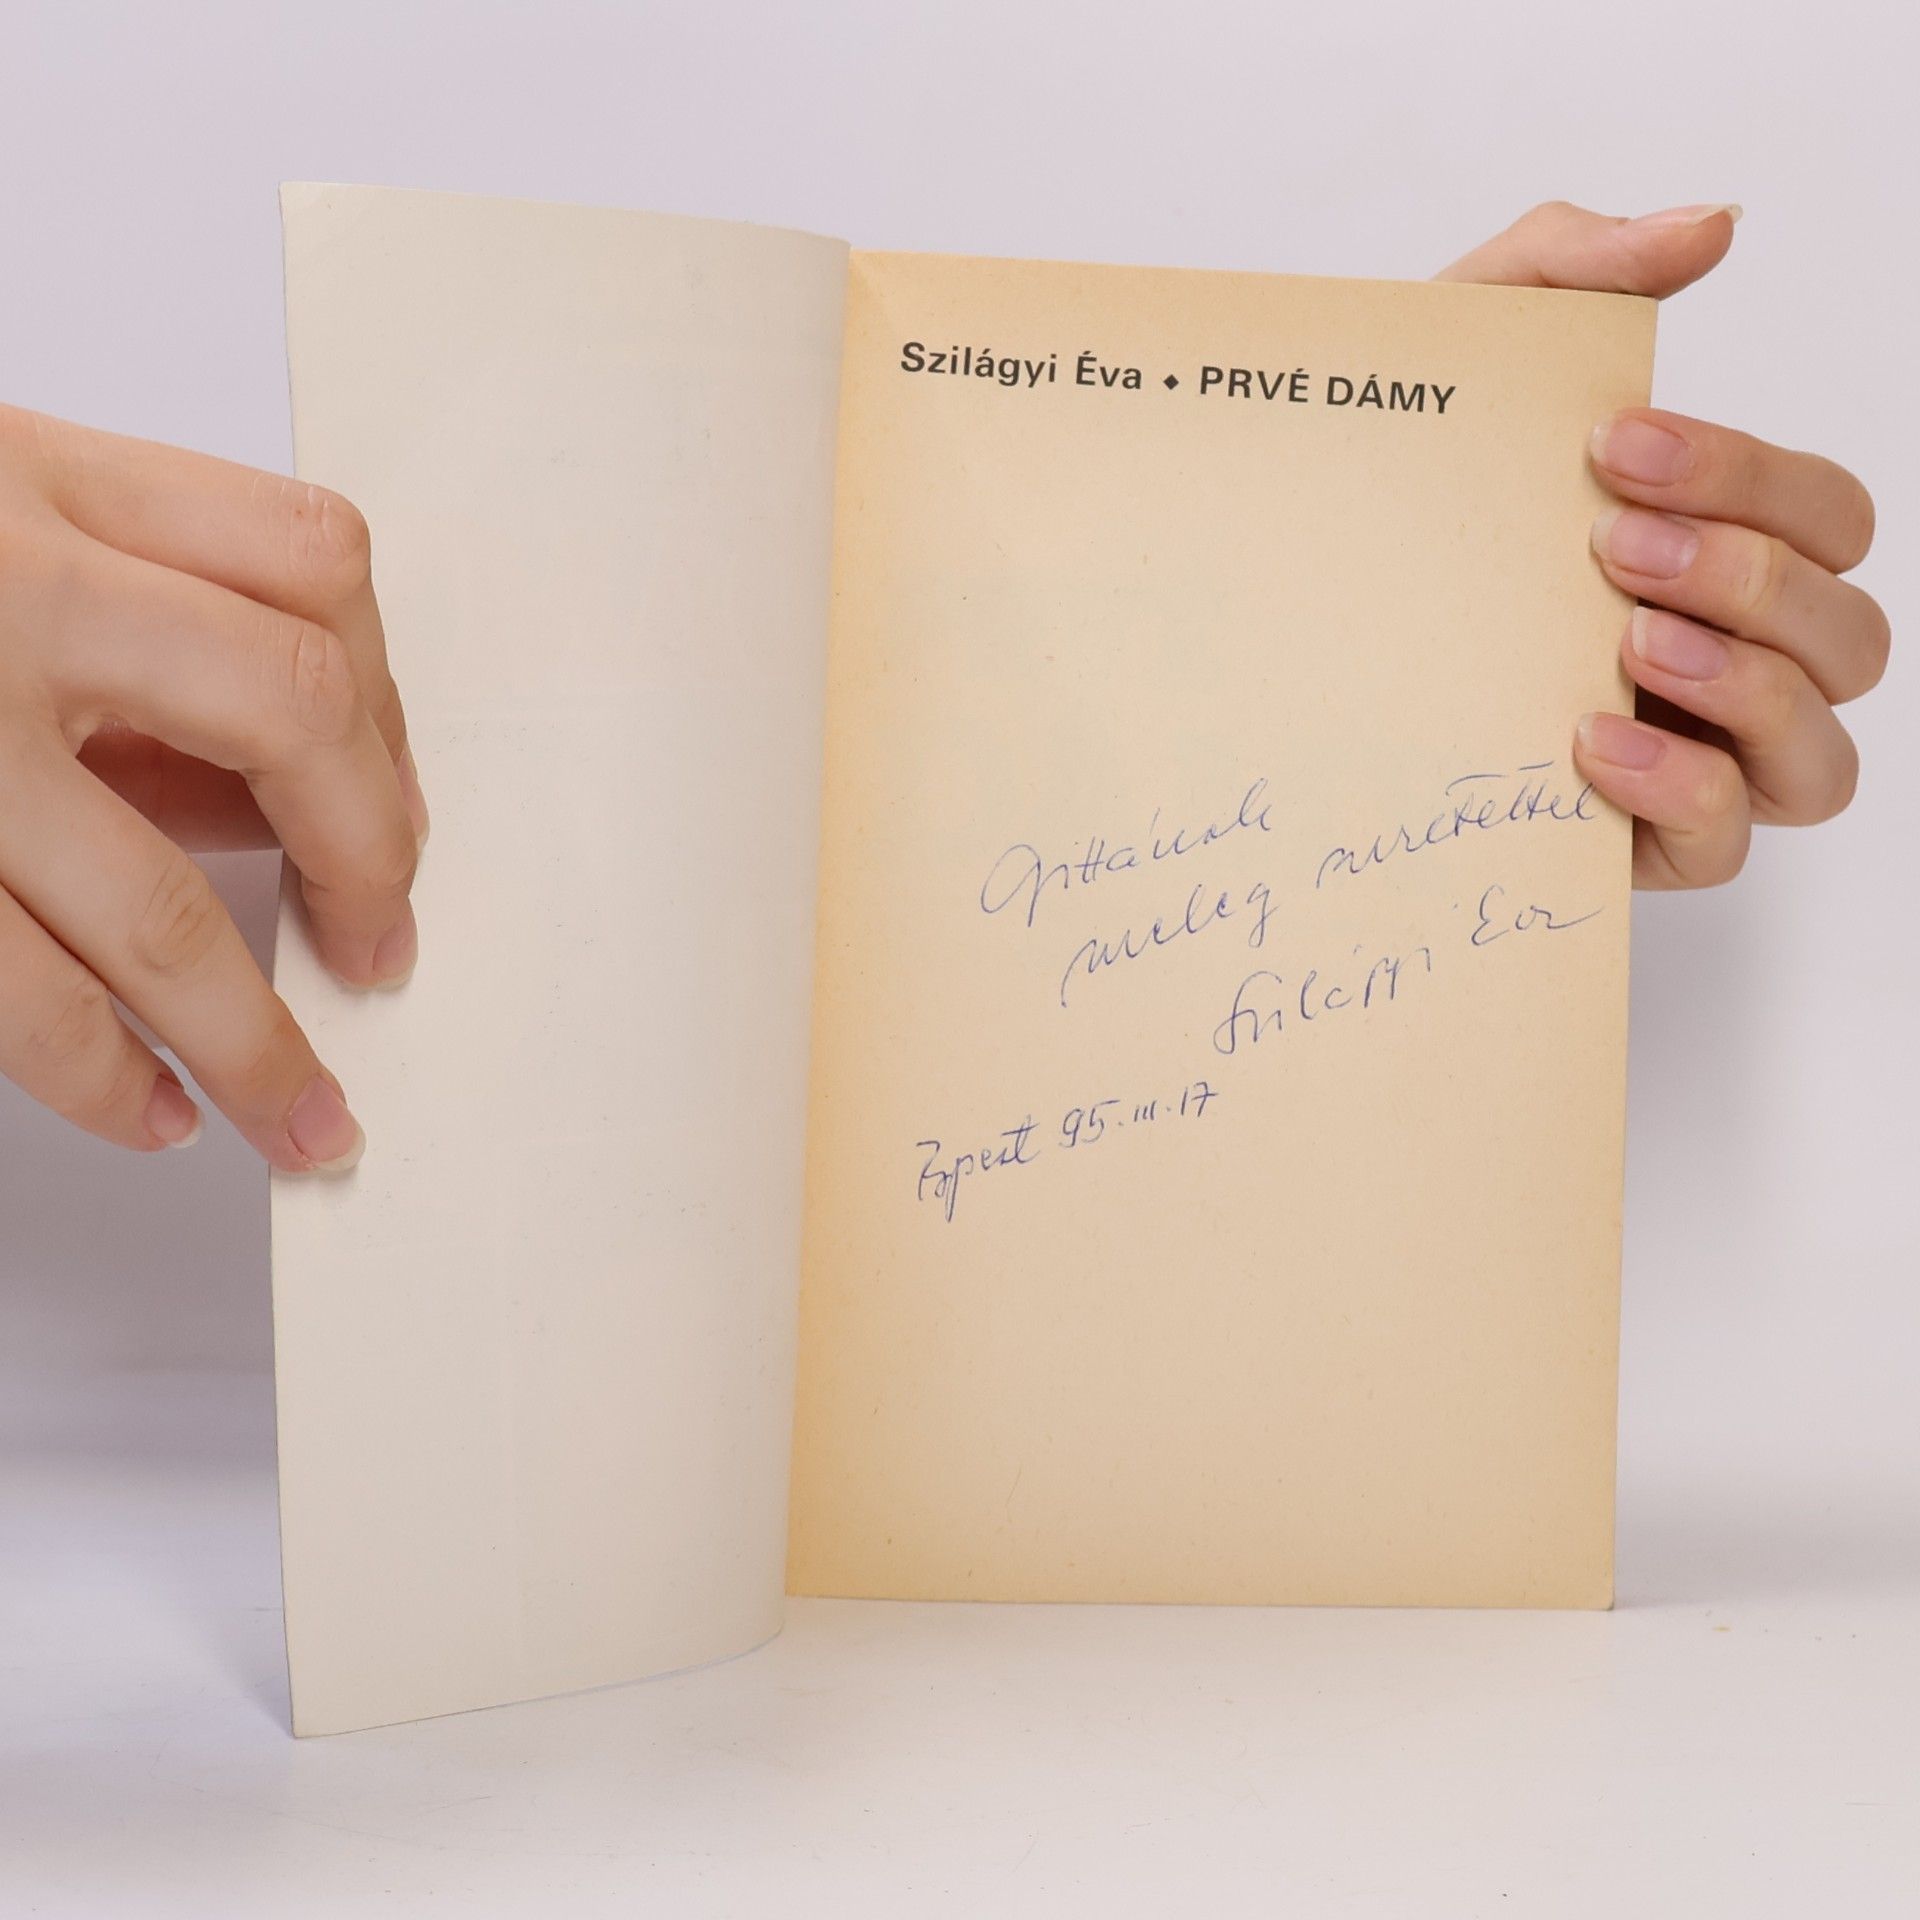 Szilágyi Éva ◆ PRVÉ DÁMY
Gittának
meleg szeretettel
Szilágyi Éva
Bpest 95.III.17